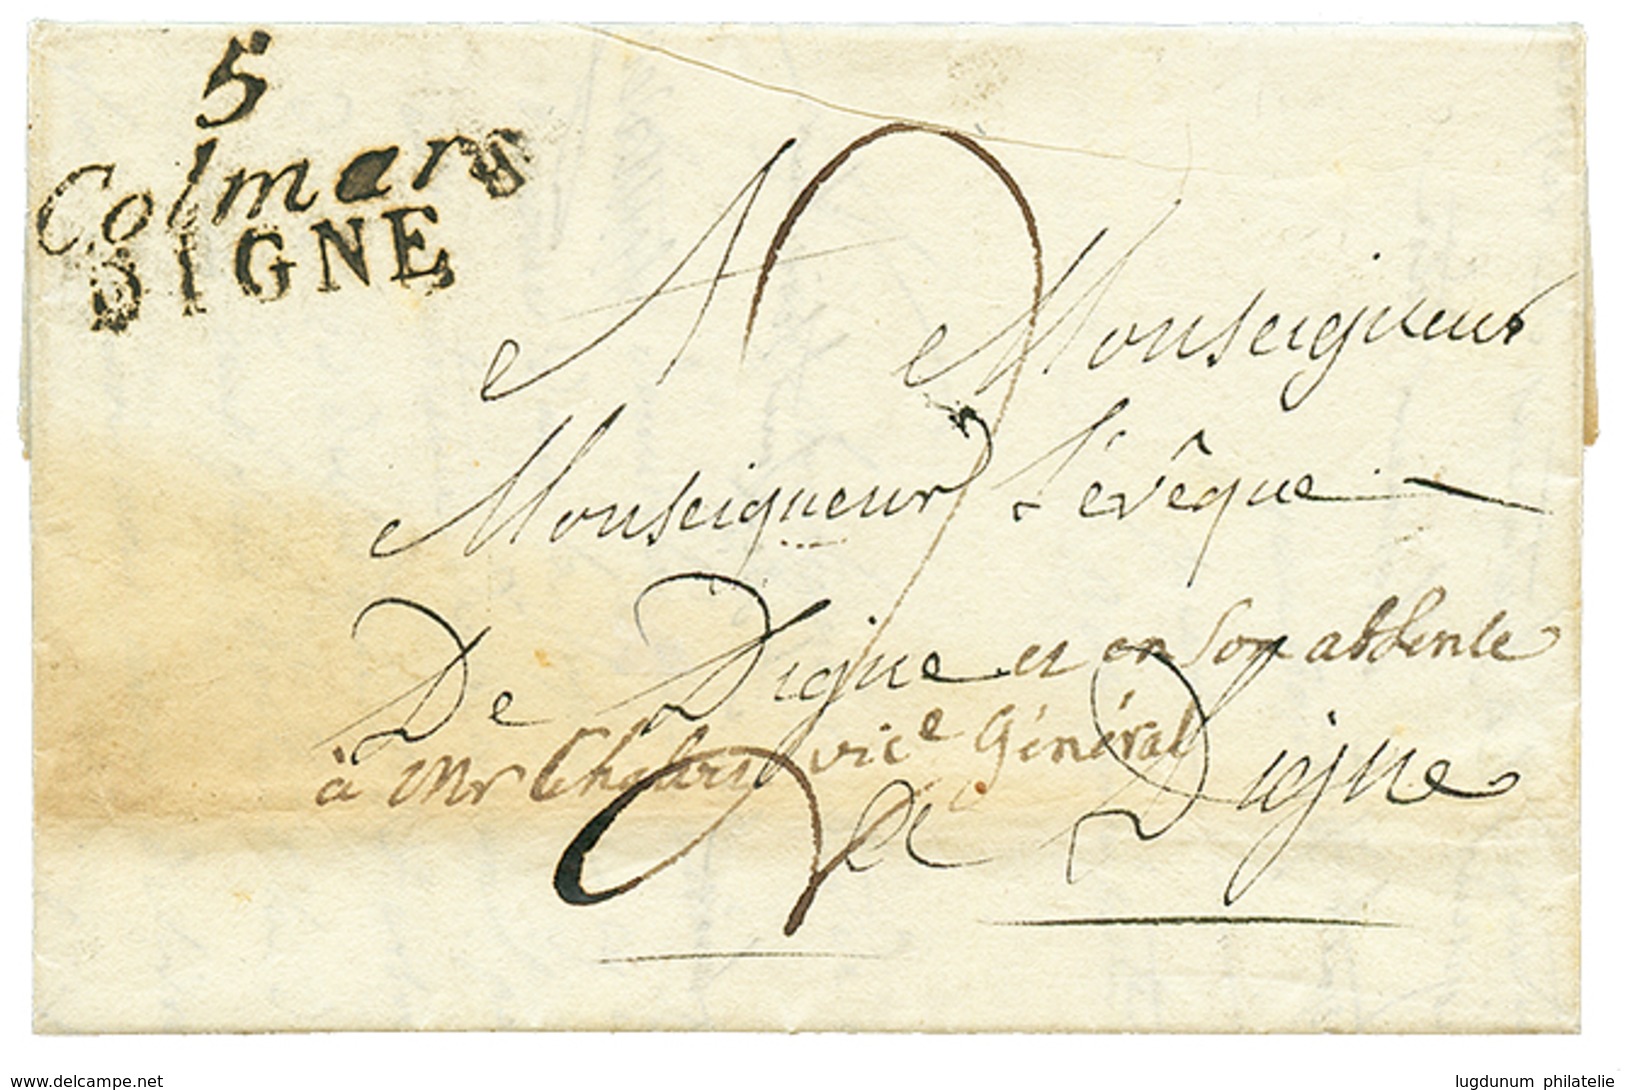 5
Colmars
DIGNE
A Monseigneur
Monseigneur L'évêque
De Digne et en son absence
à Mr vice Général
de Digne
2
www.delcampe.net
lugdunum philatelie